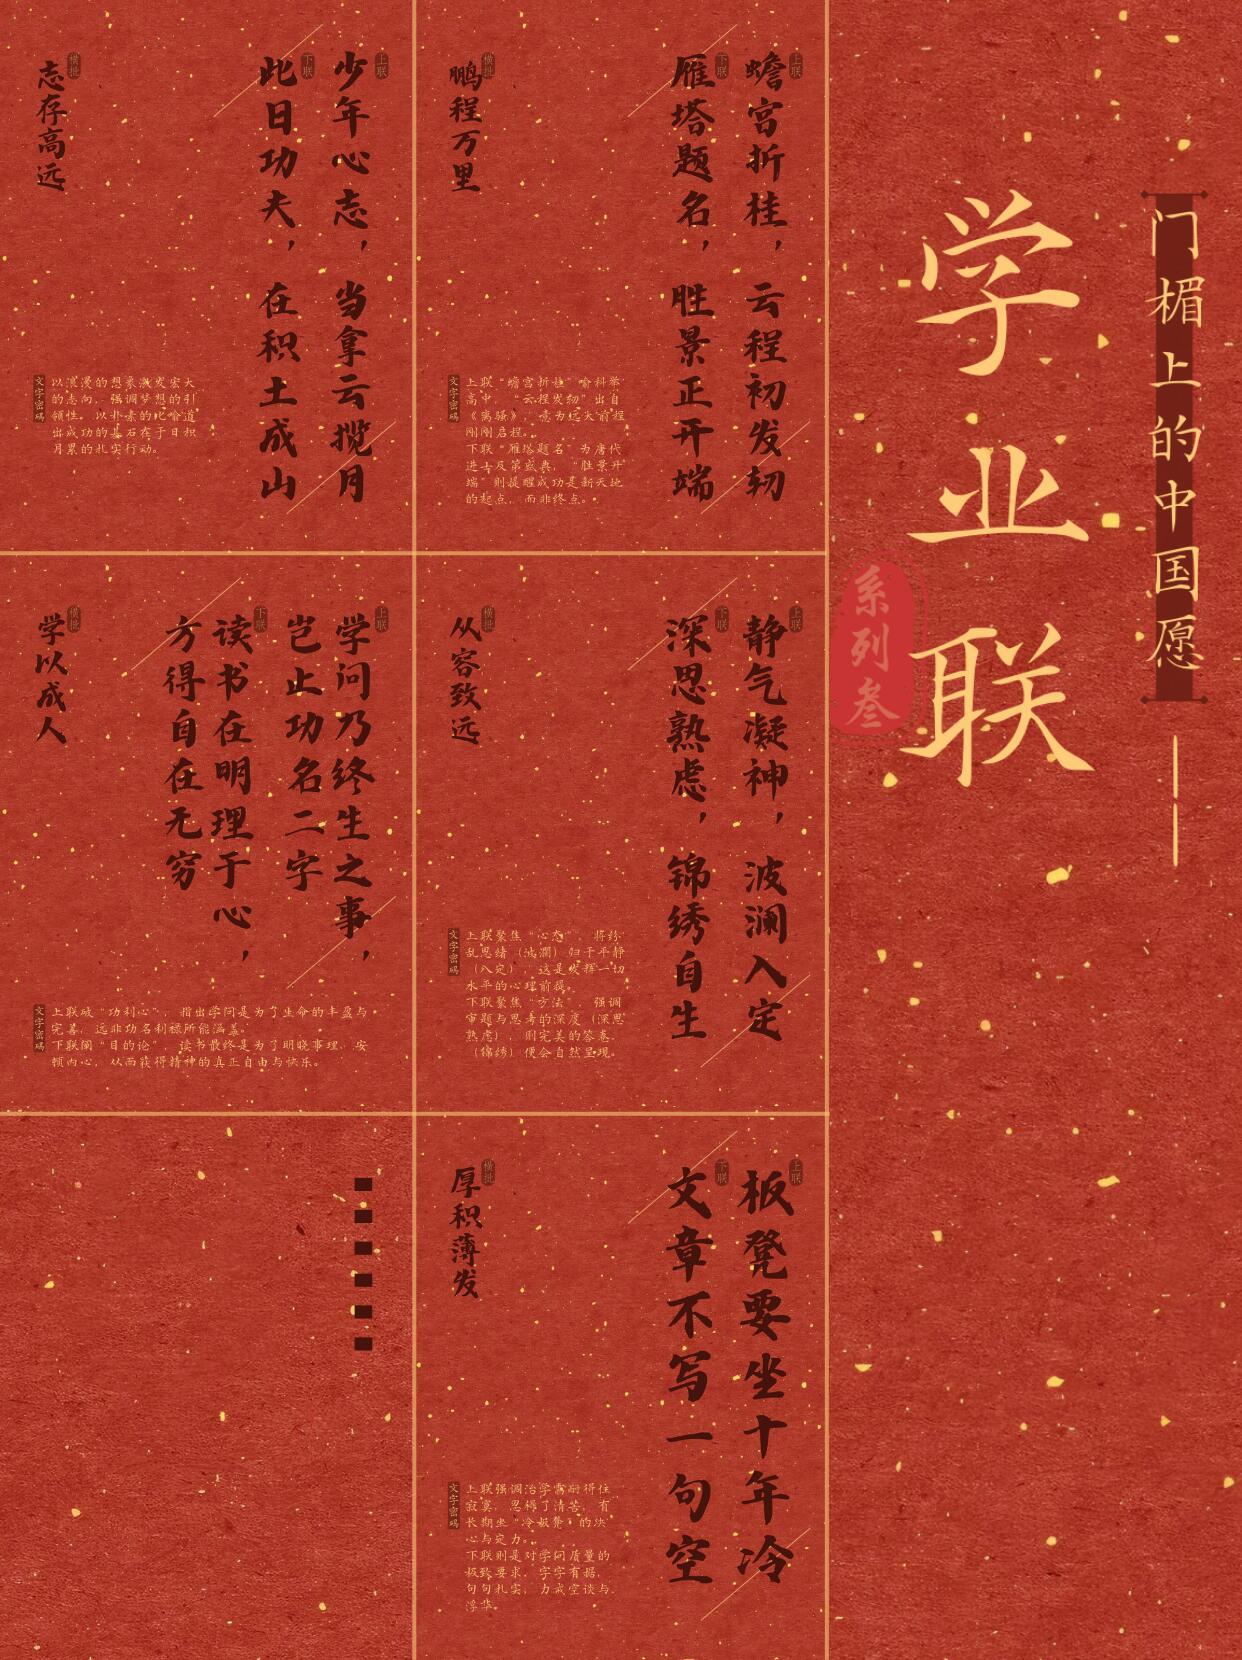 门楣上的中国愿
——
学业联
系列叁
上联
蟾宫折桂，云程初发轫
下联
雁塔题名，胜景正开端
横批
鹏程万里
文字密码
上联“蟾宫折桂”喻科举
高中，“云程发轫”出自
《离骚》，意为远大前程
刚刚启程。
下联“雁塔题名”为唐代
进士及第盛典，“胜景开
端”则提醒成功是新天地
的起点，而非终点。
上联
少年心志，当拿云揽月
下联
此日功夫，在积土成山
横批
志存高远
文字密码
以浪漫的想象激发宏大
的志向，强调梦想的引
领性。以朴素的比喻道
出成功的基石在于日积
月累的扎实行动。
上联
静气凝神，波澜入定
下联
深思熟虑，锦绣自生
横批
从容致远
文字密码
上联聚焦“心态”，将纷
乱思绪（波澜）归于平静
（入定），这是发挥一切
水平的心理前提。
下联聚焦“方法”，强调
审题与思考的深度（深思
熟虑），则完美的答卷
（锦绣）便会自然呈现。
上联
学问乃终生之事，
岂止功名二字
下联
读书在明理于心，
方得自在无穷
横批
学以成人
文字密码
上联破“功利心”，指出学问是为了生命的丰盈与
完善，远非功名利禄所能涵盖。
下联阐“目的论”，读书最终是为了明晓事理，安
顿内心，从而获得精神的真正自由与快乐。
上联
板凳要坐十年冷
下联
文章不写一句空
横批
厚积薄发
文字密码
上联强调治学需耐得住
寂寞，忍得了清苦，有
长期坐“冷板凳”的决
心与定力。
下联则是对学问质量的
极致要求，字字有据，
句句扎实，力戒空谈与
浮华。